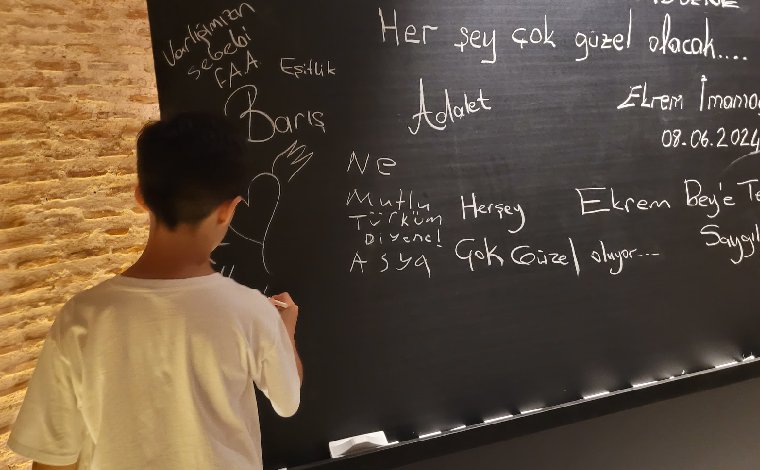 Varlığımızın
sebebi
F.A.A
Eşitlik
Barış
Her şey çok güzel olacak....
Adalet
Ekrem İmamoğ
08.06.2024
Ne
Mutlu
Türküm
Diyene!
ASya
Herşey
Çok Güzel oluyor...
Ekrem Bey'e Te
Saygıl